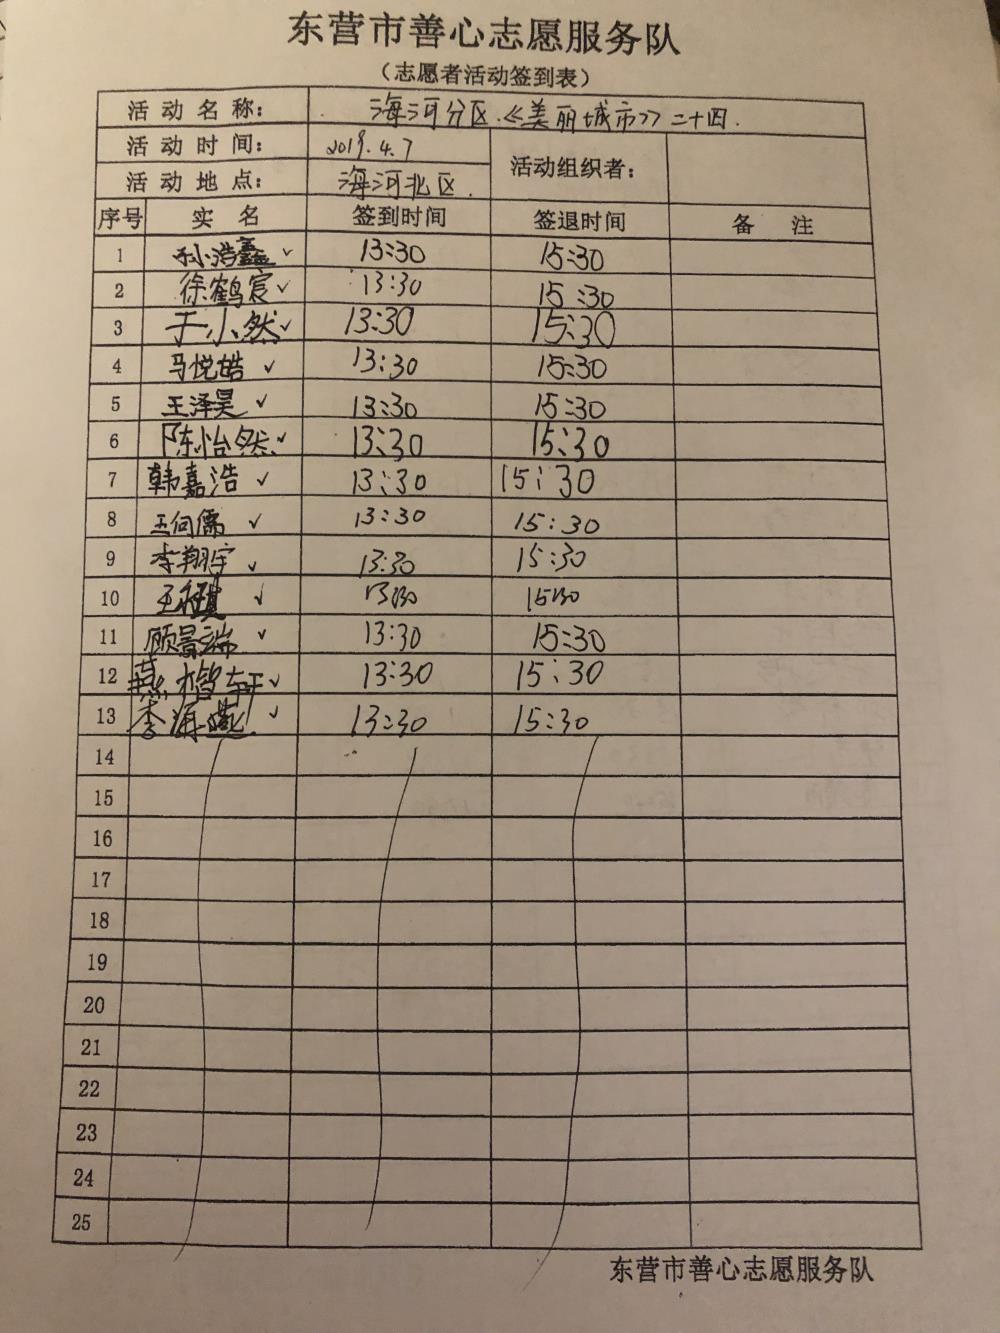 东营市善心志愿服务队
（志愿者活动签到表）
活动名称： 海河分区.《美丽城市》二十四.
活动时间： 2019.4.7 活动组织者：
活动地点： 海河北区.
序号 实名 签到时间 签退时间 备注
1 孙浩鑫 ✓ 13:30 15:30
2 徐鹤宸 ✓ 13:30 15:30
3 于小然 ✓ 13:30 15:30
4 马悦皓 ✓ 13:30 15:30
5 王泽昊 ✓ 13:30 15:30
6 陈怡然 ✓ 13:30 15:30
7 韩嘉浩 ✓ 13:30 15:30
8 王向儒 ✓ 13:30 15:30
9 李翔宇 ✓ 13:30 15:30
10 王 ✓ 13:30 15:30
11 顾景端 ✓ 13:30 15:30
12 燕楷轩 ✓ 13:30 15:30
13 李海燕 ✓ 13:30 15:30
14
15
16
17
18
19
20
21
22
23
24
25
东营市善心志愿服务队